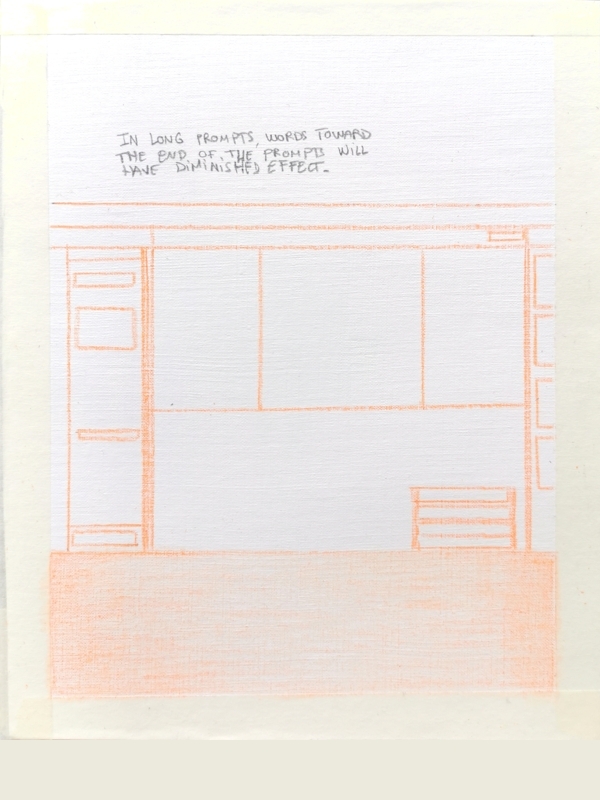 IN LONG PROMPTS, WORDS TOWARD
THE END OF THE PROMPTS WILL
HAVE DIMINISHED EFFECT.